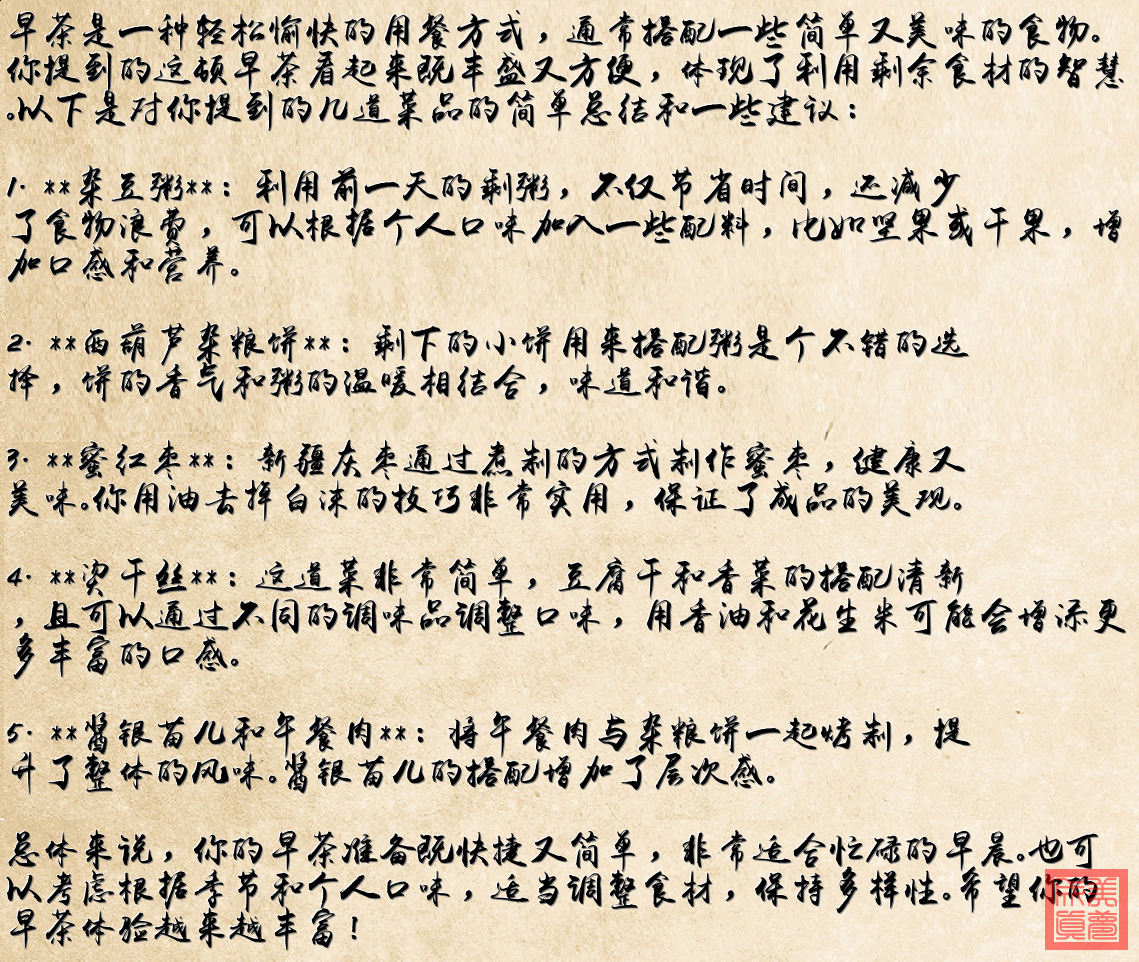 早茶是一种轻松愉快的用餐方式，通常搭配一些简单又美味的食物。
你提到的这顿早茶看起来既丰盛又方便，体现了利用剩余食材的智慧
。以下是对你提到的几道菜品的简单总结和一些建议：
1. **杂豆粥**：利用前一天的剩粥，不仅节省时间，还减少
了食物浪费，可以根据个人口味加入一些配料，比如坚果或干果，增
加口感和营养。
2. **西葫芦杂粮饼**：剩下的小饼用来搭配粥是个不错的选
择，饼的香气和粥的温暖相结合，味道和谐。
3. **蜜红枣**：新疆灰枣通过煮制的方式制作蜜枣，健康又
美味。你用油去掉白沫的技巧非常实用，保证了成品的美观。
4. **烫干丝**：这道菜非常简单，豆腐干和香菜的搭配清新
，且可以通过不同的调味品调整口味，用香油和花生米可能会增添更
多丰富的口感。
5. **酱银苗儿和午餐肉**：将午餐肉与杂粮饼一起烤制，提
升了整体的风味。酱银苗儿的搭配增加了层次感。
总体来说，你的早茶准备既快捷又简单，非常适合忙碌的早晨。也可
以考虑根据季节和个人口味，适当调整食材，保持多样性。希望你的
早茶体验越来越丰富！